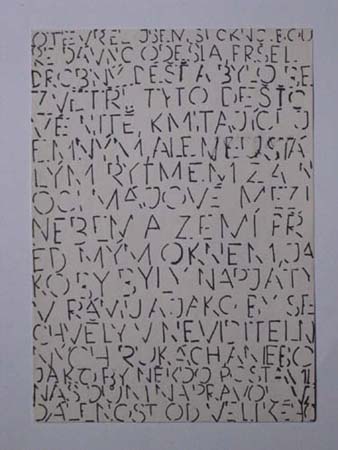 OTEVŘEL JSEM SI OKNO. BOU
ŘE DÁVNO ODEŠLA. PRŠEL
DROBNÝ DÉŠŤ A BYLO BE
Z VĚTRU. TYTO DEŠŤO
VÉ NITĚ, KMITAJÍCÍ J
EMNÝM ALE NEUSTÁ
LÝM RYTMEM ZA N
OCI MÁJOVÉ MEZI
NEBEM A ZEMÍ PŘ
ED MÝM OKNEM, JA
KO BY BYLY NAPJATY
V RÁMU A JAKO BY SE
CHVĚLY V NEVIDITELN
ÝCH RUKÁCH ANEBO
JAKO BY NĚKDO
NÁŠ DŮM NAPRAVO V
DÁLENOST OD VELIKÉ